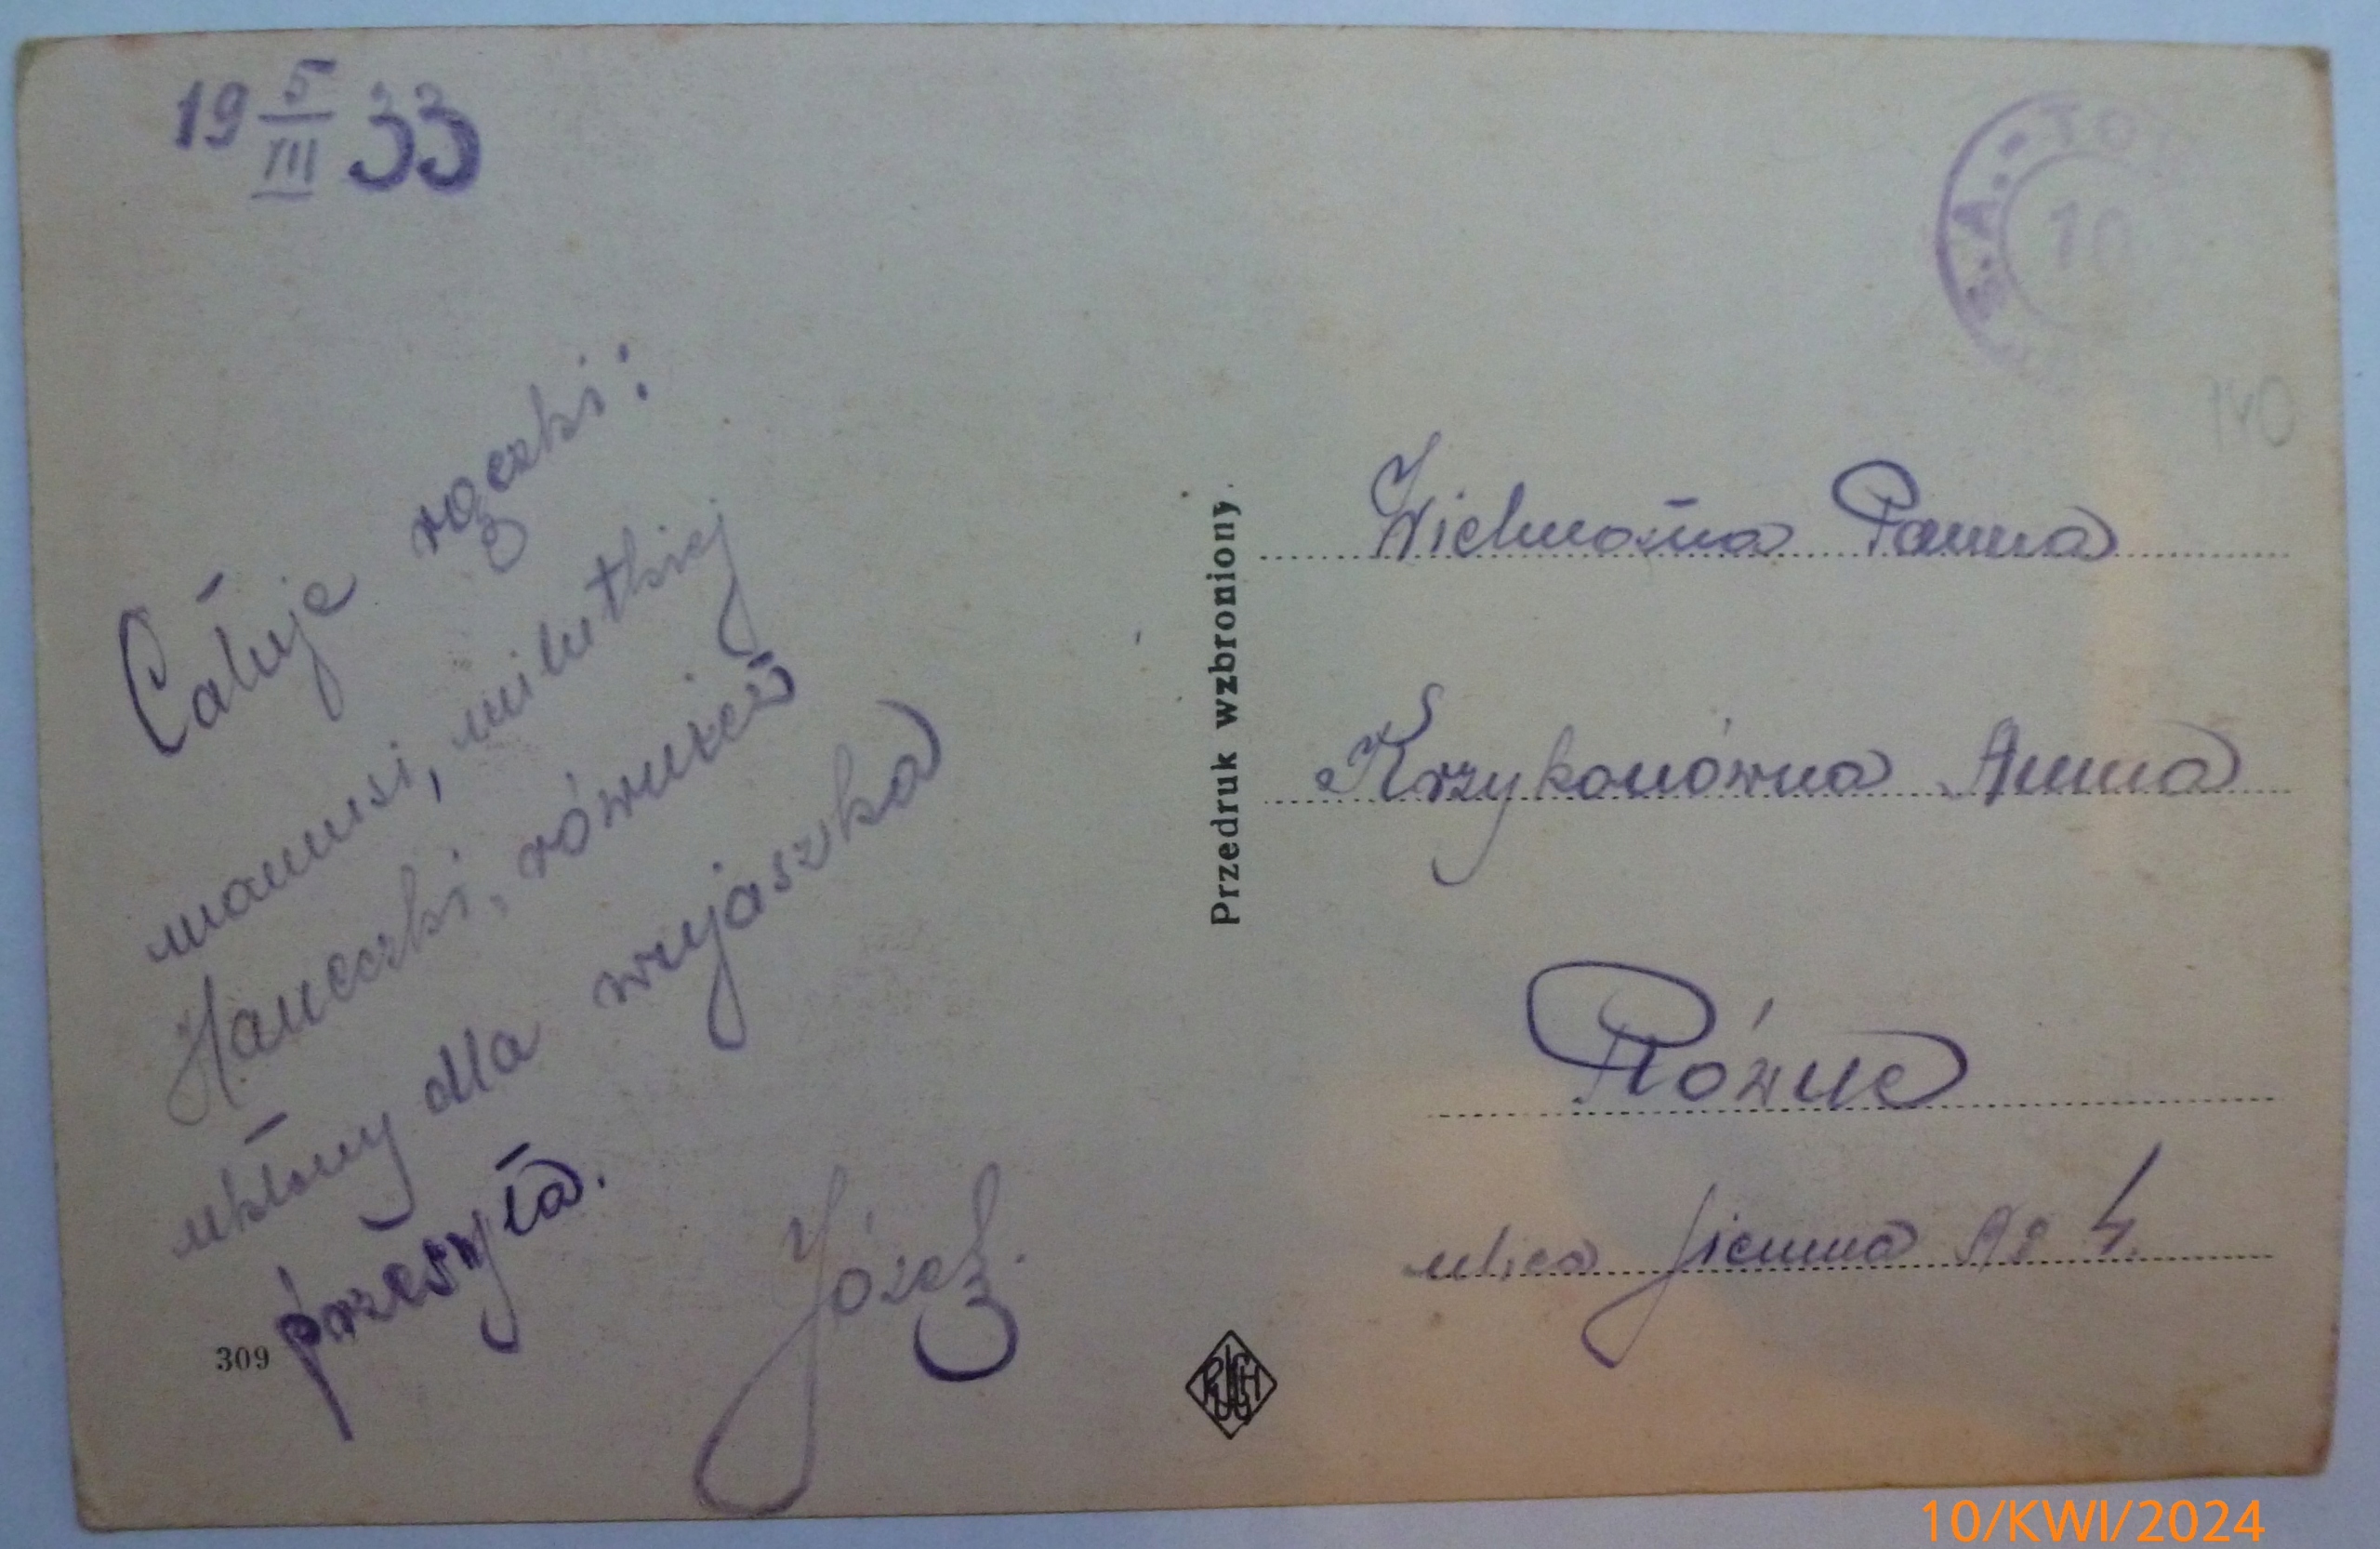 19 5/III 33
Całuję rączki:
mamusi, milutkiej
Haneczki, również
ukłony dla wujaszka
przesyła.
Józef.
309
Przedruk wzbroniony.
RUCH
Wielmożna Panna
Krzykonówna Anna
Równe
ulica Jienna No 4.
.A.-TO
10
140
10/KWI/2024